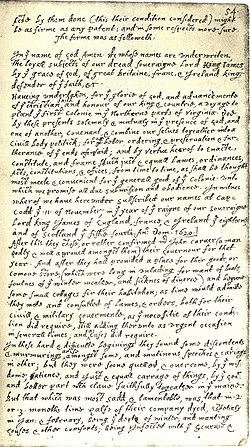 54
selves by them done (this their condition considered) might
be as firme as any patent; and in some respects more sure.
The forme was as followeth.
In yͤ name of god Amen. We whose names are underwriten,
the loyall subjects of our dread soveraigne Lord King James
by yͤ grace of god, of great Britaine, franc, & Ireland king,
defender of yͤ faith, &c
Haveing undertaken, for yͤ glorie of god, and advancemente
of yͤ christian faith and honour of our king & countrie, a voyage to
plant yͤ first colonie in yͤ Northerne parts of Virginia. doe
by these presents solemnly & mutualy in yͤ presence of god, and
one of another, covenant, & combine our selves togeather into a
civill body politick; for our better ordering, & preservation & fur=
therance of yͤ ends aforesaid; and by vertue hearof to enacte,
constitute, and frame shuch just & equall lawes, ordinances,
Acts, constitutions, & offices, from time to time, as shall be thought
most meete & convenient for yͤ generall good of yͤ Colonie: unto
which we promise all due submission and obedience. In witnes
wherof we have hereunder subscribed our names at cap=
Codd yͤ .11. of November, in yͤ year of yͤ raigne of our soveraigne
Lord king James of England, france, & Ireland yͤ eighteenth
and of Scotland yͤ fiftie fourth. Ano: Dom. 1620.
After this they chose, or rather confirmed mr John Carver (a man
godly & well approved amongst them) their Governour for that
year. And after they had provided a place for their goods, or
comone store, (which were long in unlading for want of boats,
foulnes of yͤ winter weather, and sicknes of diverce) and begune
some small cottages for their habitation; as time would admitte
they mette and consulted of lawes, & orders, both for their
civill & military Govermente, as yͤ necessitie of their condi=
tion did require, still adding therunto as urgent occasion
in severall times, and as cases did require.
In these hard & difficulte beginings they found some discontents
& murmurings arise amongst some, and mutinous speeches & cariags
in other; but they were soone quelled, & overcome, by yͤ wis=
dome, patience, and just & equall carrage of things, by yͤ Govr
and better part wch clave faithfully togeather in yͤ maine.
But that which was most sadd, & lamentable, was, that in .2.
or .3. moneths time halfe of their company dyed, espetialy
in Jan: & february, being yͤ depth of winter, and wanting
houses & other comforts; being Infected with yͤ Scurvie &